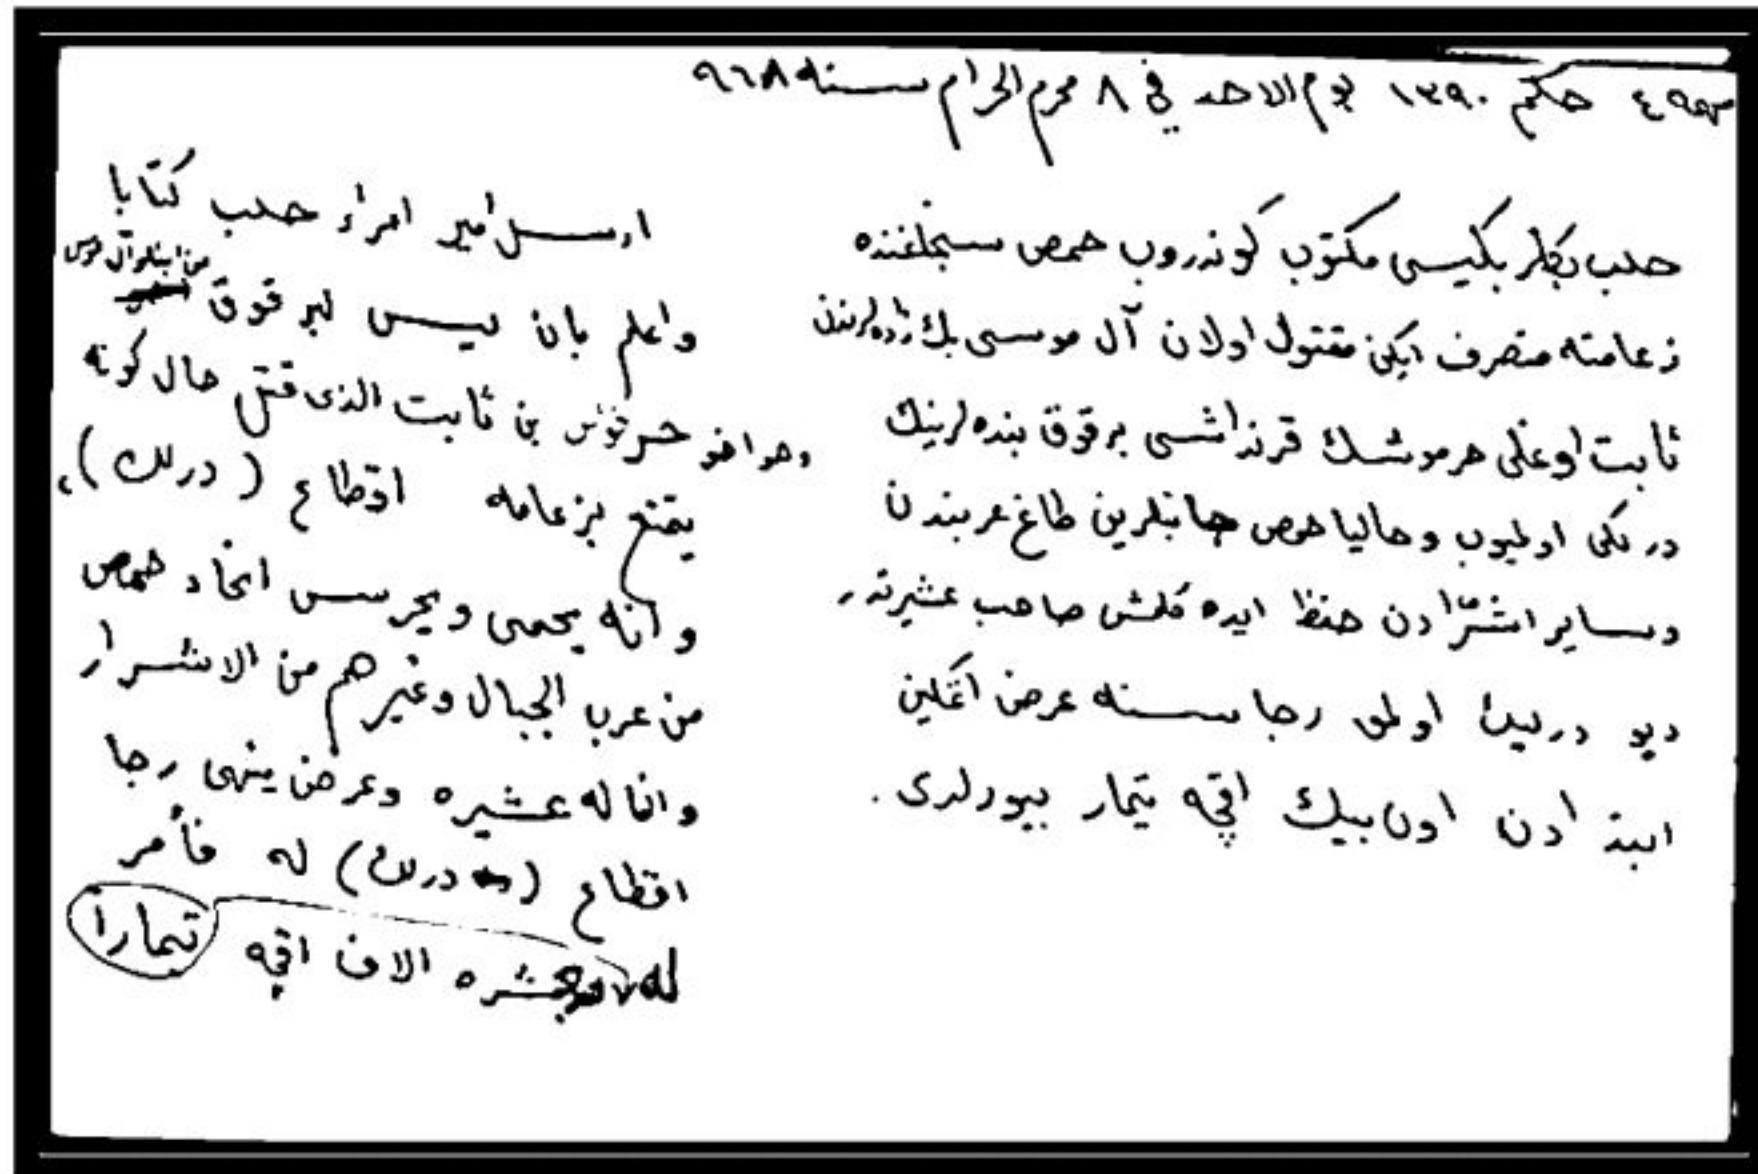 حكم ١٣٩٠ يوم الاحد في ٨ محرم الحرام سنه ٩٦٨
حلب بكلر بكيسى مكتوب كوندروب حمص سنجاغنده
زعامته متصرف ايكن مقتول اولان آل موسى بك زاده لرندن
ثابت اوغلى حرموشك قرنداشى برقوق بنده لرينك
دركى اولميوب وحاليا حمص جانبلرين طاغ عربندن
وساير اشرّادن حفظ ايده كلمش صاحب عشيرتدر
ديو درليك اولمق رجاسنه عرض اتمكين
ابتدادن اون بيك اقچه تيمار بيورلدى.
ارسل امير امراء حلب كتابا
واعلم بان ليس لبرقوق من ابناء آل موسى
وهو اخو حرفوش بن ثابت الذى قتل حال كونه
يتمتع بزعامه اقطاع (درلك)،
وانه يحمى ويحرس انحاء حمص
من عرب الجبال وغيرهم من الاشرار
وانا له عشيره وعرض ينهى رجا
اقطاع (درلك) له فأمر
له عشره الاف اقچه تيمارا